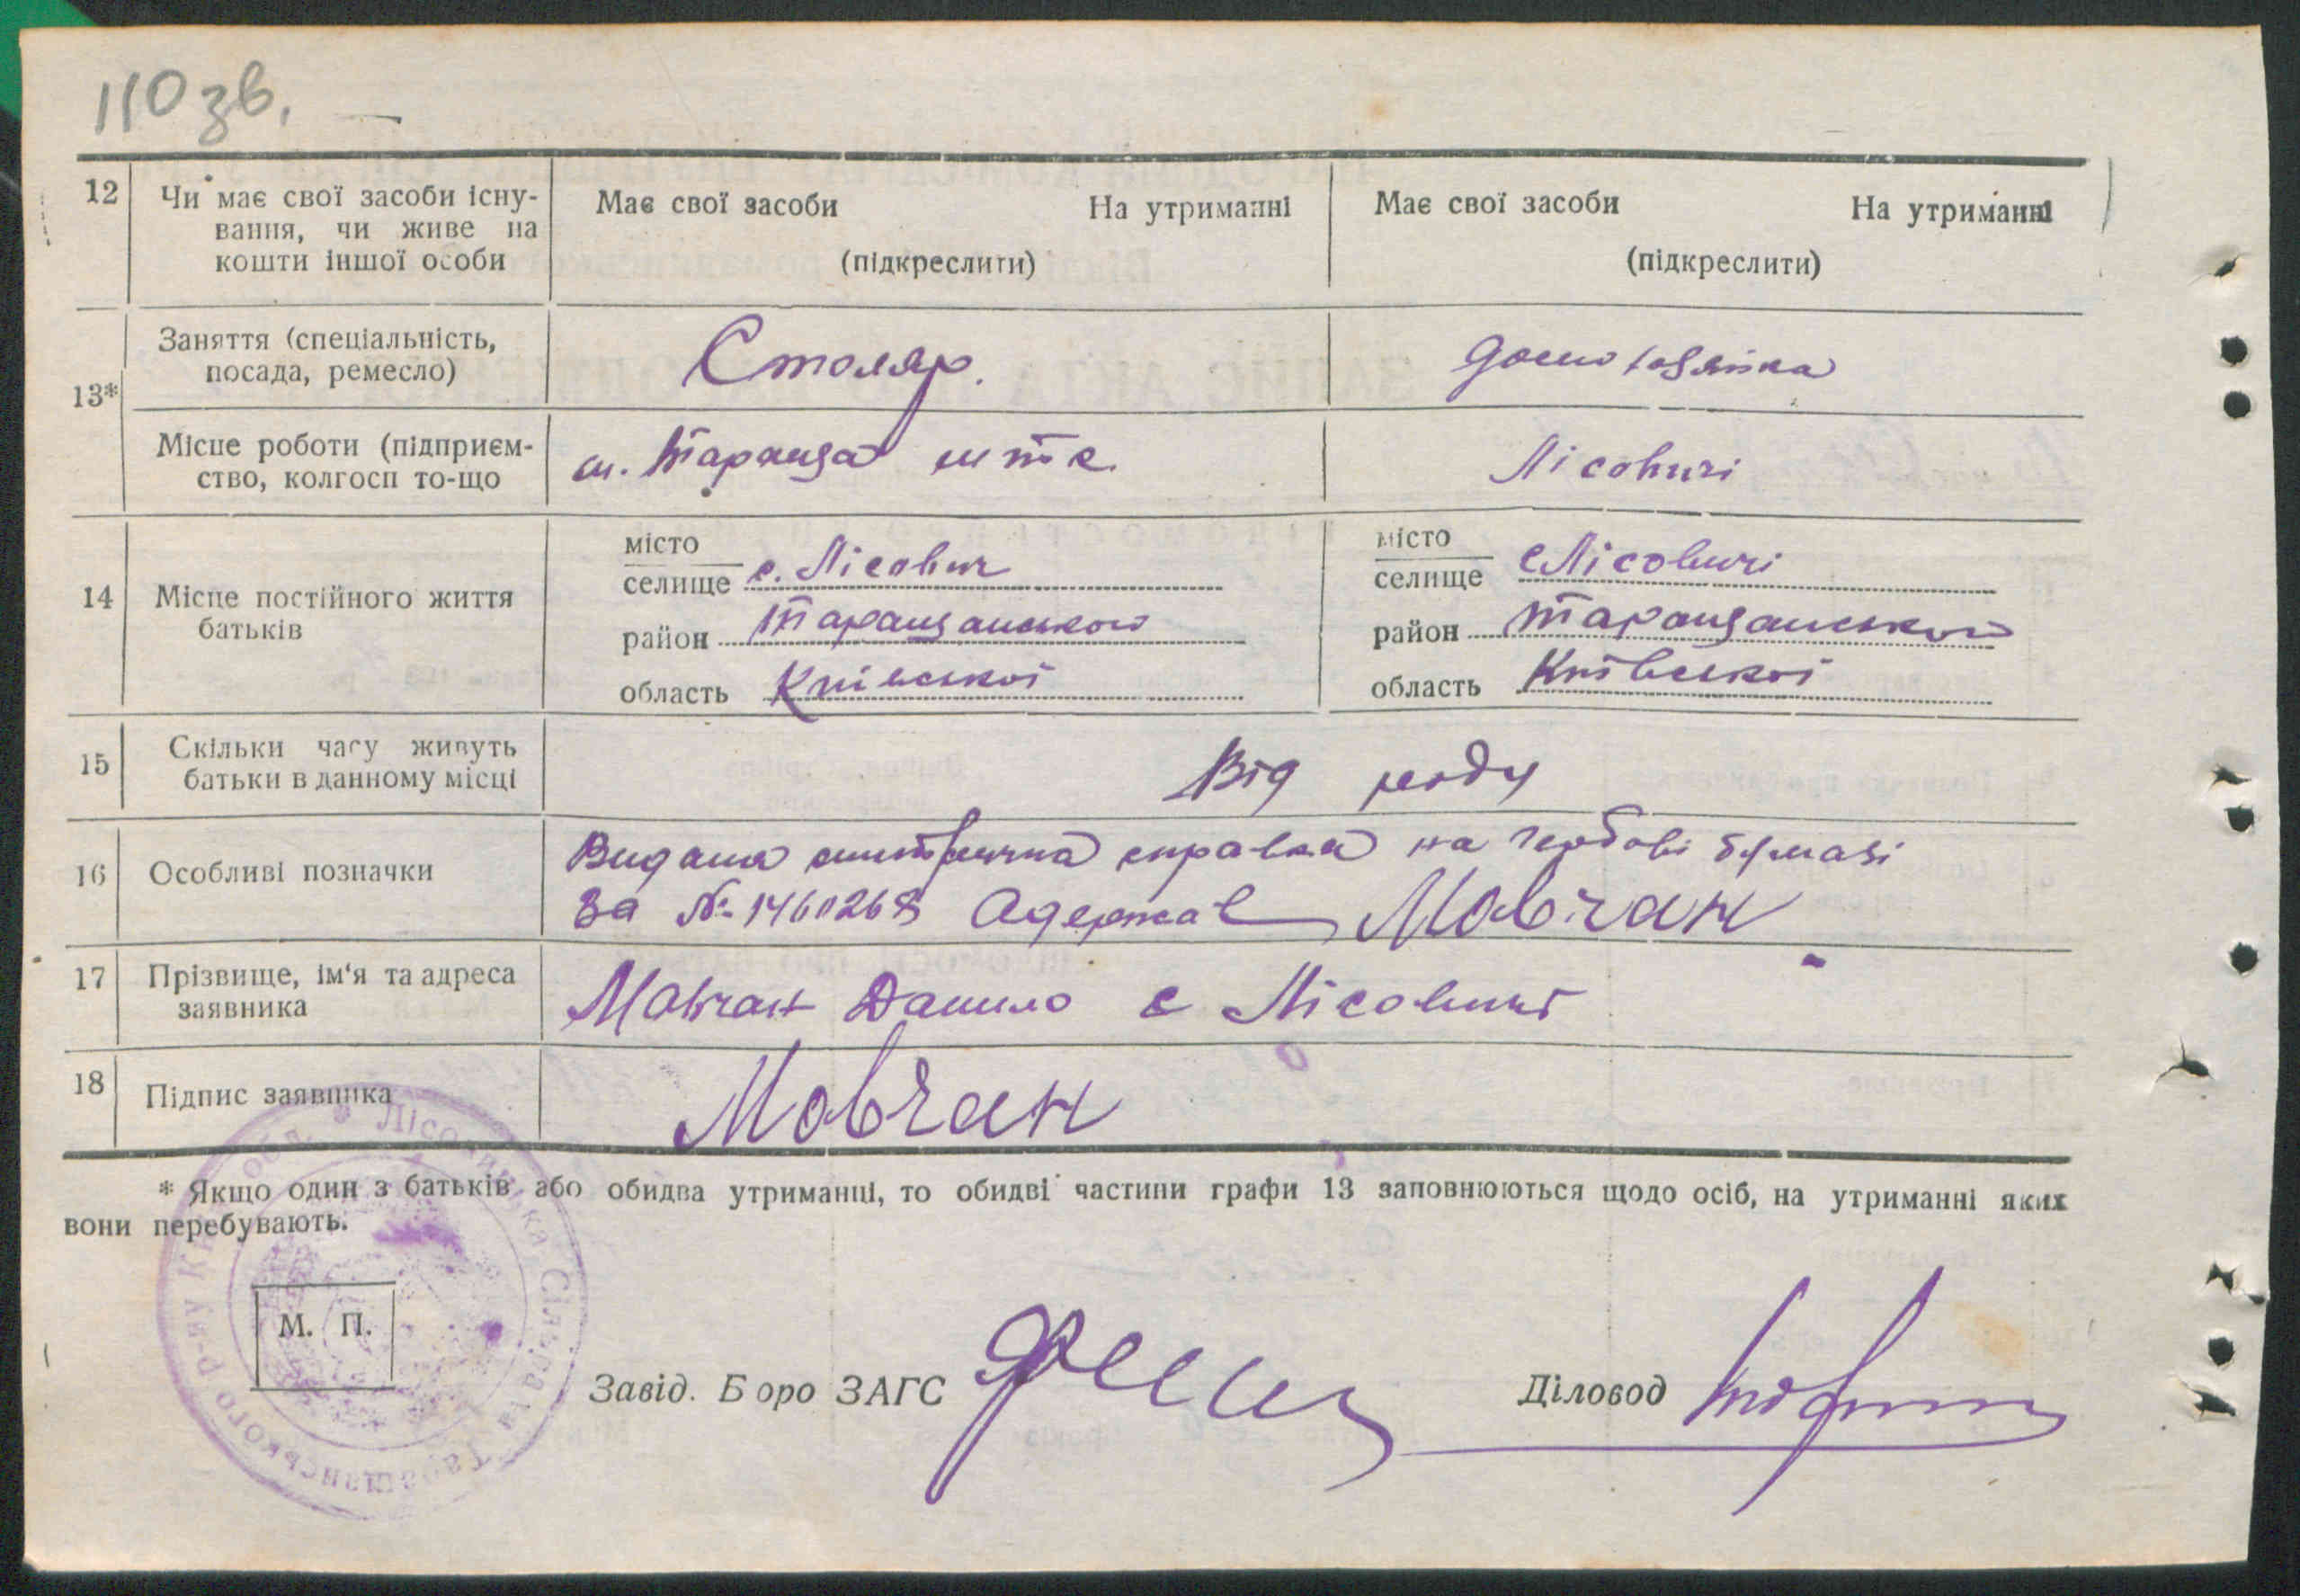 110 зв.
12 Чи має свої засоби існу-
вання, чи живе на
кошти іншої особи
Має свої засоби На утриманні
(підкреслити)
Має свої засоби На утриманні
(підкреслити)
13*
Заняття (спеціальність,
посада, ремесло)
Столяр.
Домогосв
Місце роботи (підприєм-
ство, колгосп то-що
м. Тараща
Лісовичі
14 Місце постійного життя
батьків
місто
селище с. Лісович
район Таращанського
область Київської
місто
селище с Лісовичі
район Таращанського
область Київської
15 Скільки часу живуть
батьки в данному місці
Від роду
16 Особливі позначки
Видана справка на гербові бумазі
За № 1460268 Адержав Мовчан
17 Прізвище, ім'я та адреса
заявника
Мовчан Данило с Лісовичі
18 Підпис заявника
Мовчан
* Якщо один з батьків або обидва утриманці, то обидві частини графи 13 заповнюються щодо осіб, на утриманні яких
вони перебувають.
М. П.
Лісовицька Сільрада Таращанського р-ну
Завід. Б оро ЗАГС
Діловод